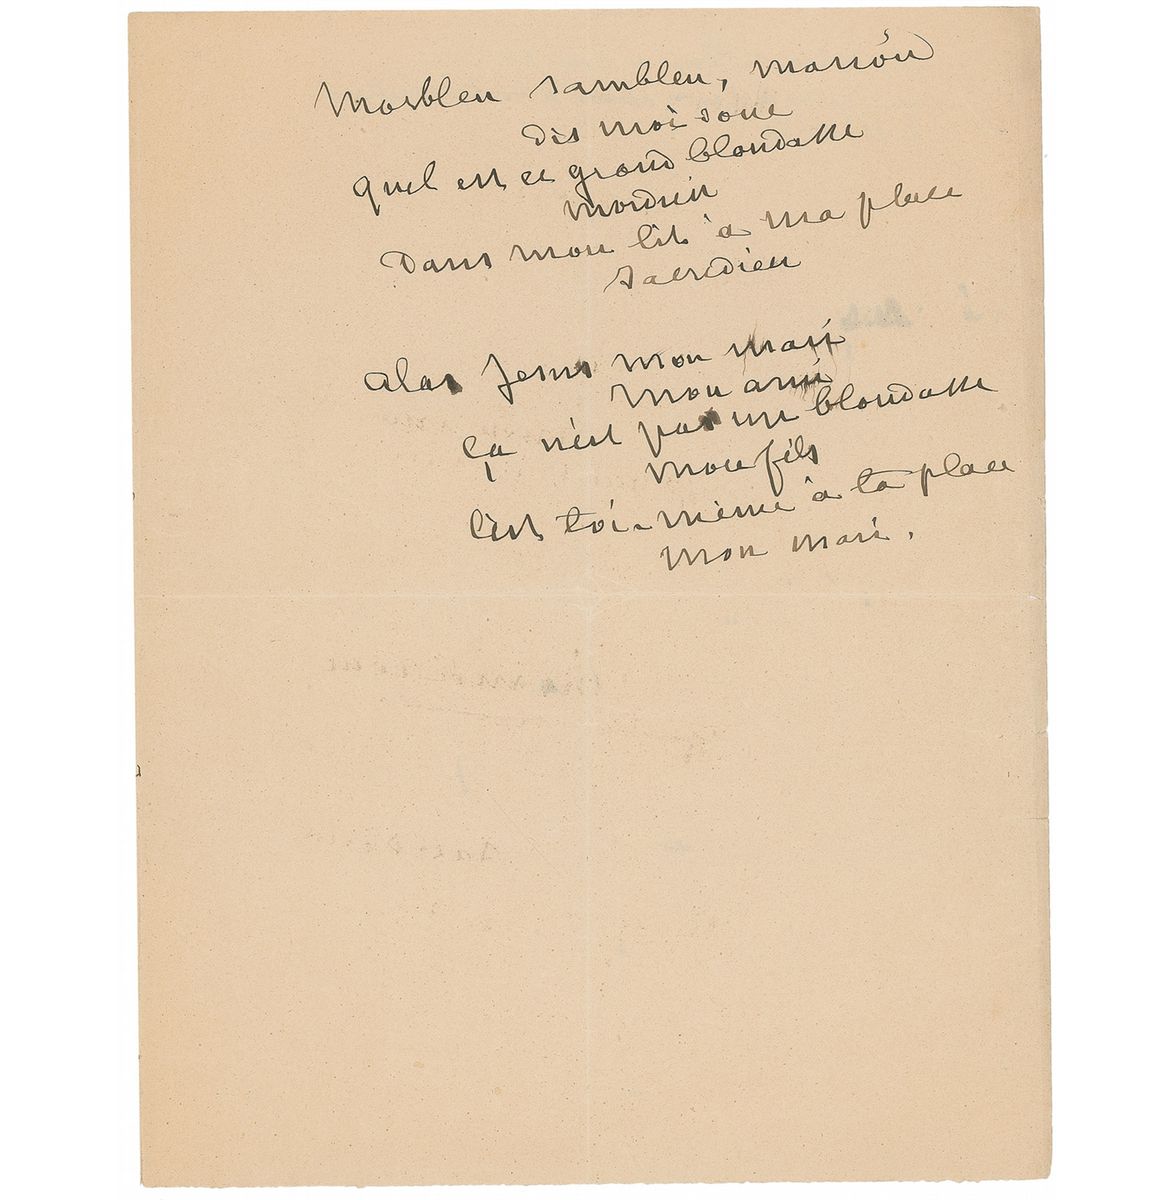 Morbleu sambleu, marion
dis moi donc
quel est ce grand blondasse
mordieu
Dans mon lit à ma place
sacredieu
alas Jesus mon mari
mon ami
ça n'est pas un blondasse
mon fils
C'est toi-même à ta place
mon mari.